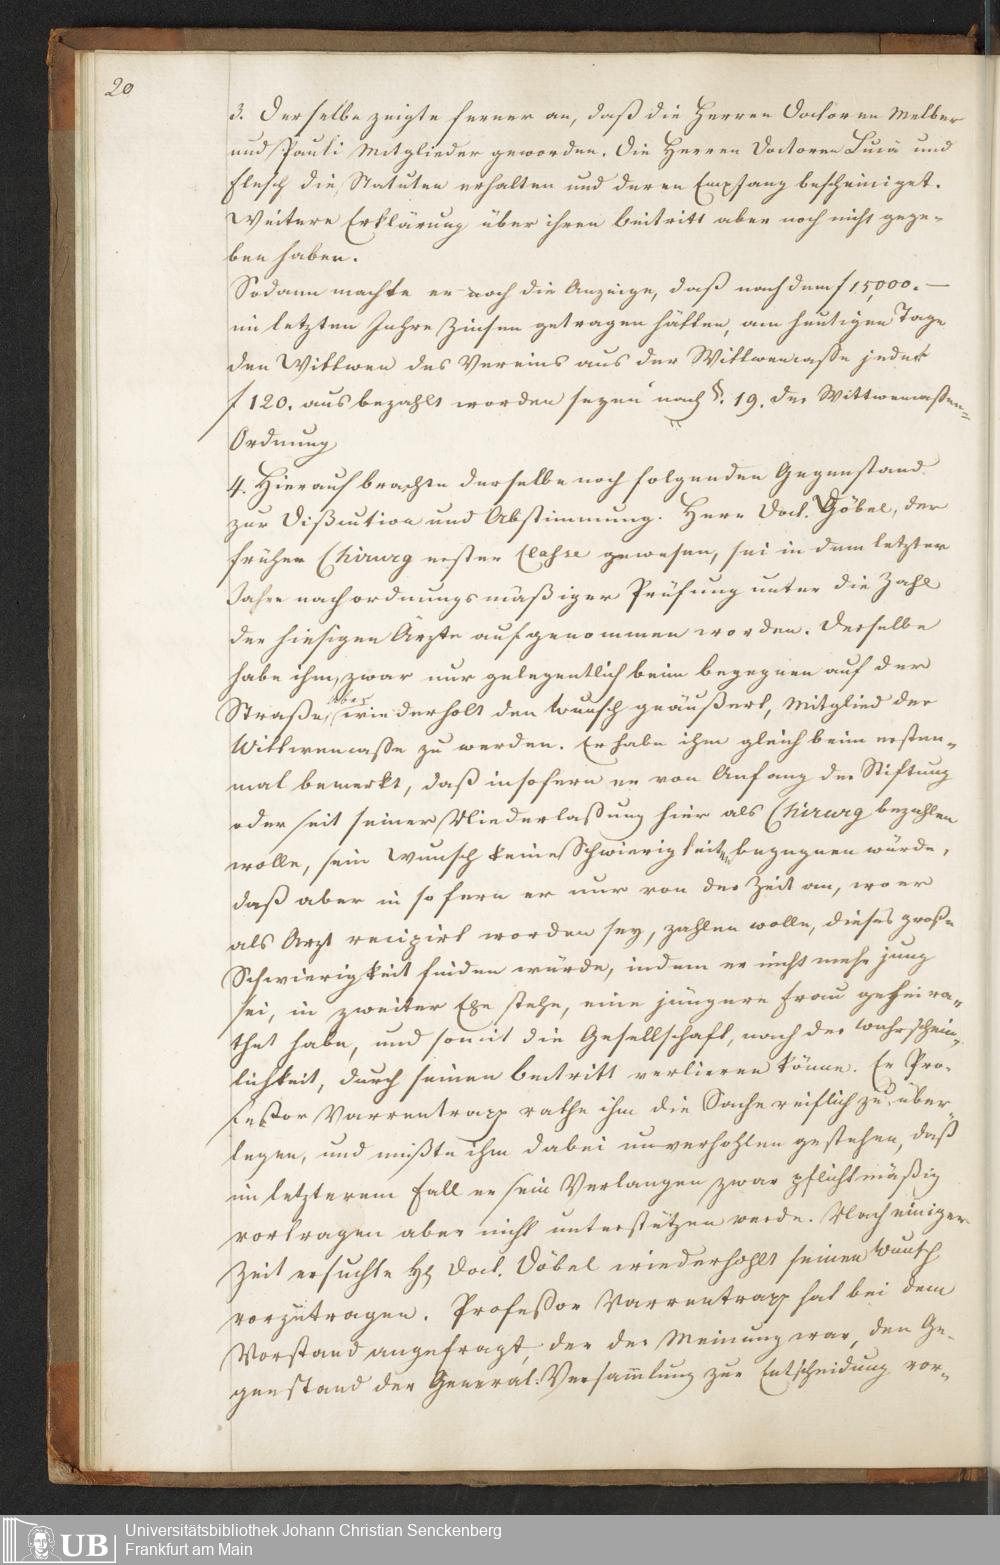 20
3. Derselbe zeigte ferner an, daß die Herren Doctoren Melber
und Pauli Mitglieder geworden. Die Herren Doctoren Lucä und
Flesch die Statuten erhalten und deren Empfang bescheiniget.
Weitere Erklärung über ihren Beitritt aber noch nicht gege-
ben haben.
Sodann machte er noch die Anzeige, daß nachdem f 15,000.—
im letzten Jahre Zinsen getragen hätten, am heutigen Tage
den Wittwen des Vereins aus der Wittwencasse jeder
f 120. ausbezahlt worden seyen nach §. 19. der Wittwencassen-
Ordnung
4. Hierauf brachte derselbe noch folgenden Gegenstand
zur Discution und Abstimmung. Herr Doct. Döbel, der
früher Chirurg erster Classe gewesen, sei in dem letzten
Jahre nach ordnungsmäßiger Prüfung unter die Zahl
der hiesigen Ärzte aufgenommen worden. Derselbe
habe ihm, zwar nur gelegentlich beim begegnen auf der
Straße, aber wiederholt den Wunsch geäußert, Mitglied der
Wittwencasse zu werden. Er habe ihm gleich beim ersten-
mal bemerkt, daß insofern er von Anfang der Stiftung
oder seit seiner Niederlaßung hier als Chirurg bezahlen
wolle, sein Wunsch keine Schwierigkeiten begegnen würde,
daß aber in so fern er nur von der Zeit an, wo er
als Arzt recipirt worden sey, zahlen wolle, dieses große
Schwierigkeit finden würde, indem er nicht mehr jung
sei, in zweiter Ehe stehe, eine jüngere Frau geheira-
thet habe, und somit die Gesellschaft, nach der Wahrschein-
lichkeit, durch seinen Beitritt verlieren könne. Er Pro-
feßor Varrentrapp rathe ihm die Sache reiflich zu über-
legen, und müßte ihm dabei unverhohlen gestehen, daß
im letzterem Fall er sein Verlangen zwar pflichtmäßig
vortragen aber nicht unterstützen werde. Nach einiger
Zeit ersuchte Hr Doct. Döbel wiederhohlt seinen Wunsch
vorzutragen. Profeßor Varrentrapp hat bei dem
Vorstand angefragt, der der Meinung war, den Ge-
genstand der General-Versam̄lung zur Entscheidung vor-
UB
Universitätsbibliothek Johann Christian Senckenberg
Frankfurt am Main